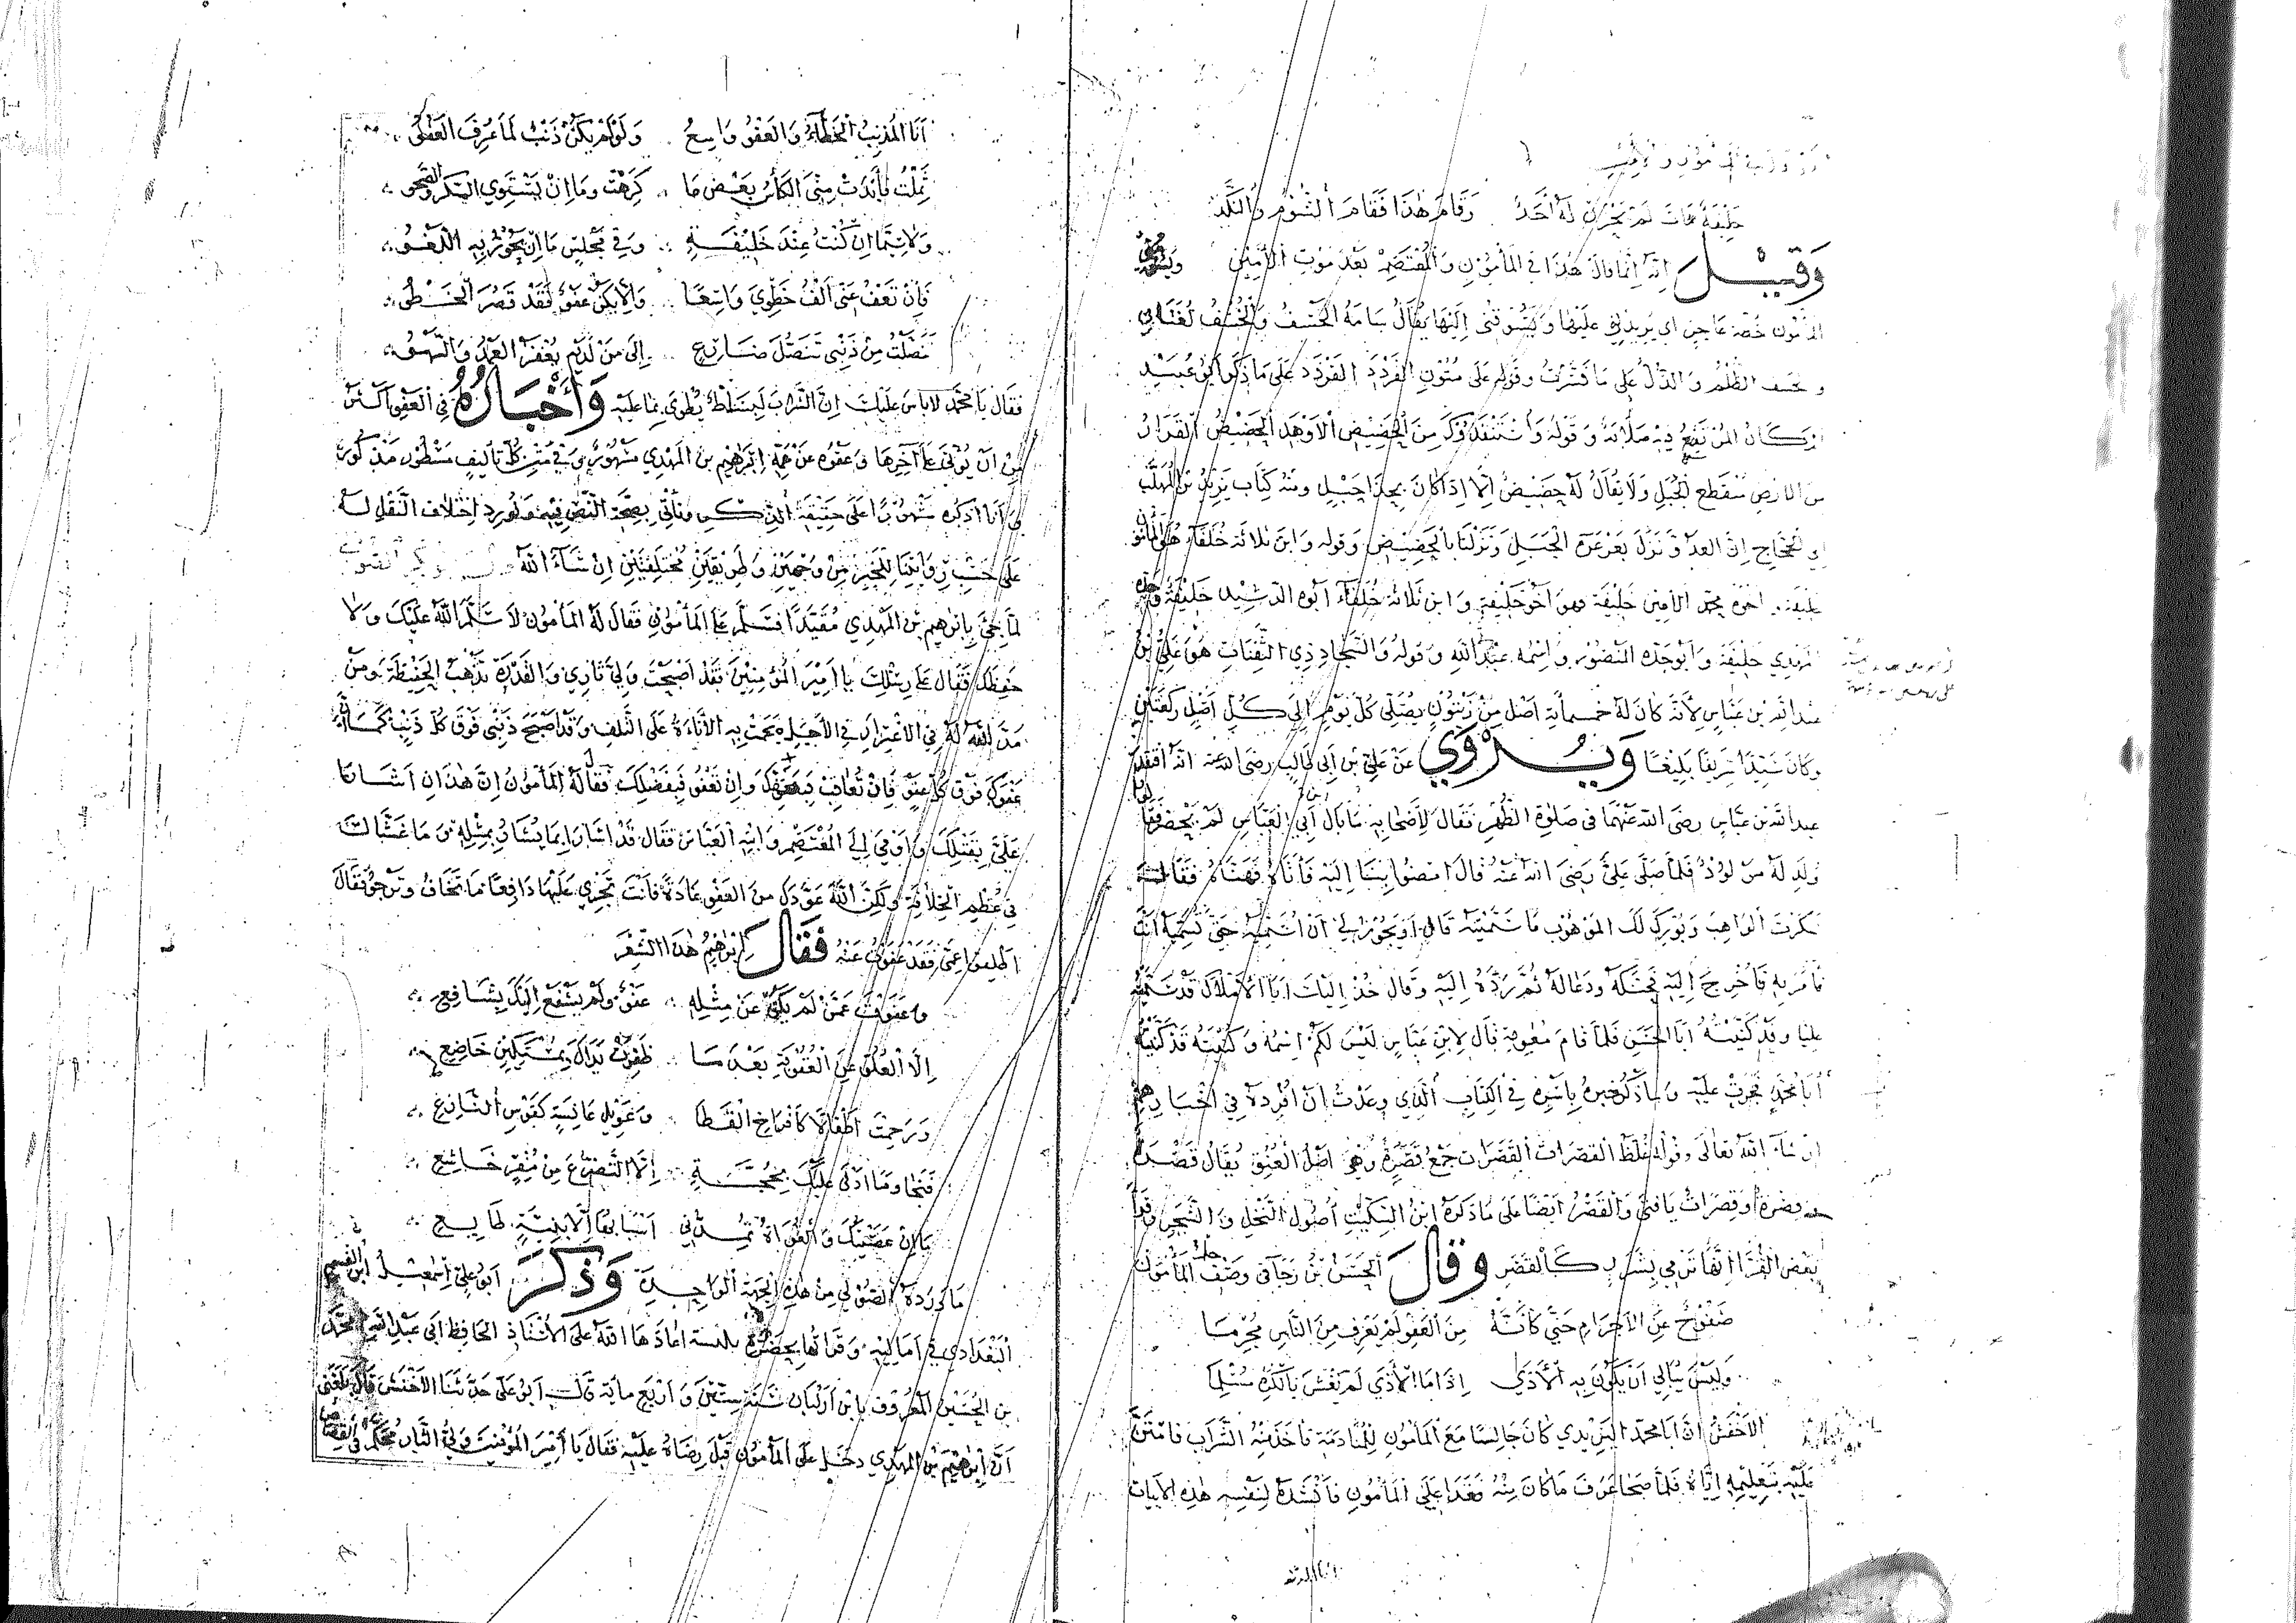 خليفة مات لم يحزن له أحد وقام هذا فقام الشؤم والنكد
وقيل انه انما قال هذا في المأمون والمعتصم بعد موت الأمين
اي يريدني عليها ويسومني اليها يقال سامه الخسف والخسف لغتان
الظلم والذل على ما فسرت وقوله على متون القردد القردد على ما ذكر ابو عبيد
المرتفع فيه صلابة وقوله واستنقذوك من الحضيض الاوهد الحضيض القرار
من الارض منقطع الجبل ولا يقال له حضيض الا اذا كان بحذا جبل ومنه كتاب يزيد بن المهلب
الى الحجاج ان العدو نزل بعرعرة الجبل ونزلنا بالحضيض وقوله وابن ثلاثة خلفاء هو المأمون
خليفة واخوه محمد الامين خليفة وهو اخو خليفة وابن ثلاثة خلفاء ابوه الرشيد خليفة وجده
المهدي خليفة وابو جده المنصور واسمه عبد الله وقوله والسجاد ذي الثفنات هو علي بن
عبد الله بن عباس لأنه كان له خمسمأية اصل من زيتون يصلي كل يوم الى كل اصل ركعتين
وكان سيدا شريفا بليغا ويروي عن علي بن ابي طالب رضى الله عنه انه افتقد
عبد الله بن عباس رضى الله عنهما في صلوة الظهر فقال لأصحابه ما بال أبي العباس لم يحضر فقالوا
ولد له مولود فلما صلى علي رضى الله عنه قال امضوا بنا اليه فأتاه فهنأه فقال له
شكرت الواهب وبورك لك الموهوب ما سميته قال أو يجوز لي أن اسميه حتى تسميه انت
فأمر به فأخرج اليه فحنكه ودعا له ثم رده اليه وقال خذ اليك ابا الأملاك قد سميته
عليا وقد كنيته أبا الحسن فلما قام معوية قال لابن عباس ليس لكم اسمه وكنيته قد كنيته
أبا محمد فجرت عليه وسأذكر خبره بأسره في الكتاب الذي وعدت أن أفرده في أخبارهم
إن شاء الله تعالى وقوله غلظ القصرات القصرات جمع قصرة وهي اصل العنق يقال قصرة
وقصرات يا فتى والقصر أيضا على ما ذكره ابن السكيت أصول النخل والشجر وقرأ
بعض القراء انها ترمي بشرر كالقصر وقال الحسن بن رجآء في وصف المأمون
صفوح عن الاجرام حتى كأنه من العفو لم يعرف من الناس مجرما
وليس يبالي أن يكون به الأذى اذا ما الأذى لم يغش بالكره مسلما
الاخفش ان ابا محمد اليزيدي كان جالسا مع المأمون للمنادمة فأخذ منه الشراب فامتن
عليه بتعليمه اياه فلما صحا عرف ما كان منه فغدا على المأمون فأنشده لنفسه هذه الابيات
أنا المذنب
أنا المذنب الخطاء والعفو واسع ولو لم يكن ذنب لما عرف العفو
ثملت فأبدت مني الكأس بعض ما كرهت وما ان يستوي السكر والصحو
ولا سيما ان كنت عند خليفة وفي مجلس ما ان يجوز به اللغو
فإن تعف عني ألف خطوي واسعا وإلا يكن عفو فقد قصر الخطو
تنصلت من ذنبي تنصل ضارع إلى من لديه يغفر العمد والسهو
فقال يا محمد لا باس عليك ان الشراب لبساط يطوى بما عليه وأخباره في العفو أكثر
من أن يؤتى على آخرها وعفوه عن عمه ابرهيم بن المهدي مشهور وفي متن كل تأليف مسطور مذكور
وأنا اذكره على حقيقة الذكر ونأتي بصحة النص فيه ونورد اختلاف النقل له
على حسب روايتنا للخبر من وجهين وطريقين مختلفتين ان شاء الله
لما جئ بابرهيم بن المهدي مقيدا فسلم على المأمون فقال له المأمون لا سلم الله عليك ولا
حفظك فقال على رسلك يا امير المؤمنين فقد اصبحت ولي ثاري والقدرة تذهب الحفيظة ومن
مد الله له في الاغترار في الأجل هجمت به الأناءة على التلف وقد أصبح ذنبي فوق كل ذنب كما أن
عفوك فوق كل عفو فإن تعاقب فبحقك وإن تعفو فبفضلك فقال له المأمون إن هذان اشارا
علي بقتلك وأومى الى المعتصم وابنه العباس فقال قد اشارا بما يشار بمثله من ما غشيا لك
في عظم الخلافة ولكن الله عودك من العفو عادة فأنت تجري عليها دافعا ما تخاف وترجو فقال
اطلقوا عمي فقد عفوت عنه فقال ابرهيم هذا الشعر
وعفوت عمن لم يكن عن مثله عفو ولم يشفع اليك بشافع
إلا العلو عن العقوبة بعد ما ظفرت يداك بمستكين خاضع
ورحمت اطفالا كأفراخ القطا وعويل عانسة كقوس النازع
فنجا وما ادلى عليك بحجة إلا التضرع من مقر خاشع
ما إن عصيتك والغواة تمدني اسبابها إلا بنية طايع
ما أورده الصولي من هذه الجهة الواحدة وذكر أبو علي اسمعيل ابن القسم
البغدادي في أماليه وقرأتها بحضرة بلنسية اعاذها الله على الأستاذ الحافظ ابي عبد الله محمد
بن الحسين المعروف بابن اركبان سنة ستين وأربع ماية قال ابو علي حدثنا الاخفش قال بلغني
أن إبرهيم بن المهدي دخل على المأمون قبل رضاه عليه فقال يا أمير المؤمنين ولي الثار محكم في القصاص